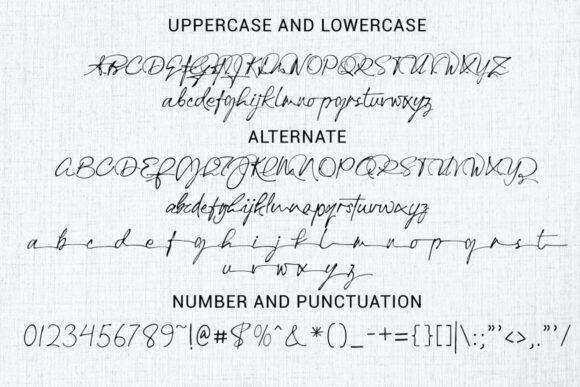 UPPERCASE AND LOWERCASE
ABCDEFGHIJKLMNOPQRSTUVWXYZ
abcdefghijklmnopqrstuvwxyz
ALTERNATE
ABCDEFGHIJKLMNOPQRSTUVWXYZ
abcdefghijklmnopqrstuvwxyz
a b c d e f g h i j k l m n o p q r s t
u v w x y z
NUMBER AND PUNCTUATION
0123456789~!@#$%^&*()_-+={}[]|\:;"'<>,."'/